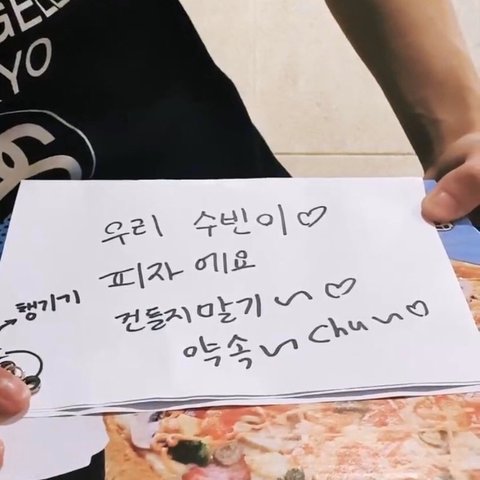 GEL
YO
우리 수빈이♡
피자에요
건들지말기~♡
약속~chu~♡
챙기기